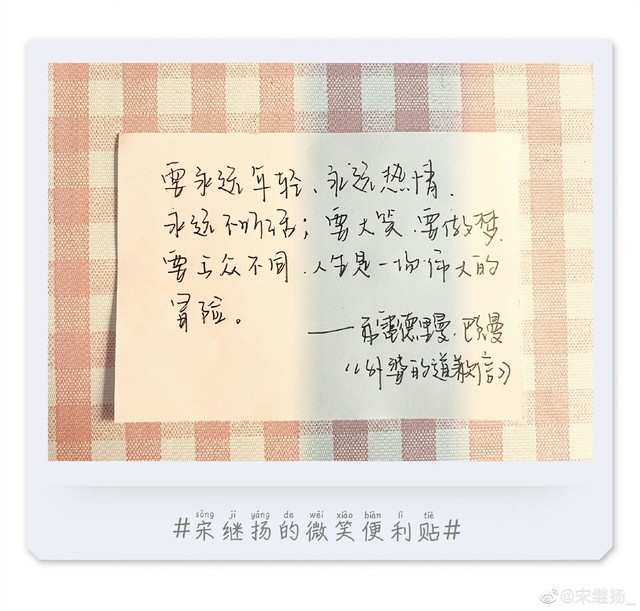 要永远年轻、永远热情、
永远不听话；要大笑.要做梦.
要与众不同.人生是一场伟大的
冒险。
——弗雷德里曼.巴曼
《外婆的道歉信》
sòng jì yáng de wēi xiào biàn lì tiē
#宋继扬的微笑便利贴#
@宋继扬_